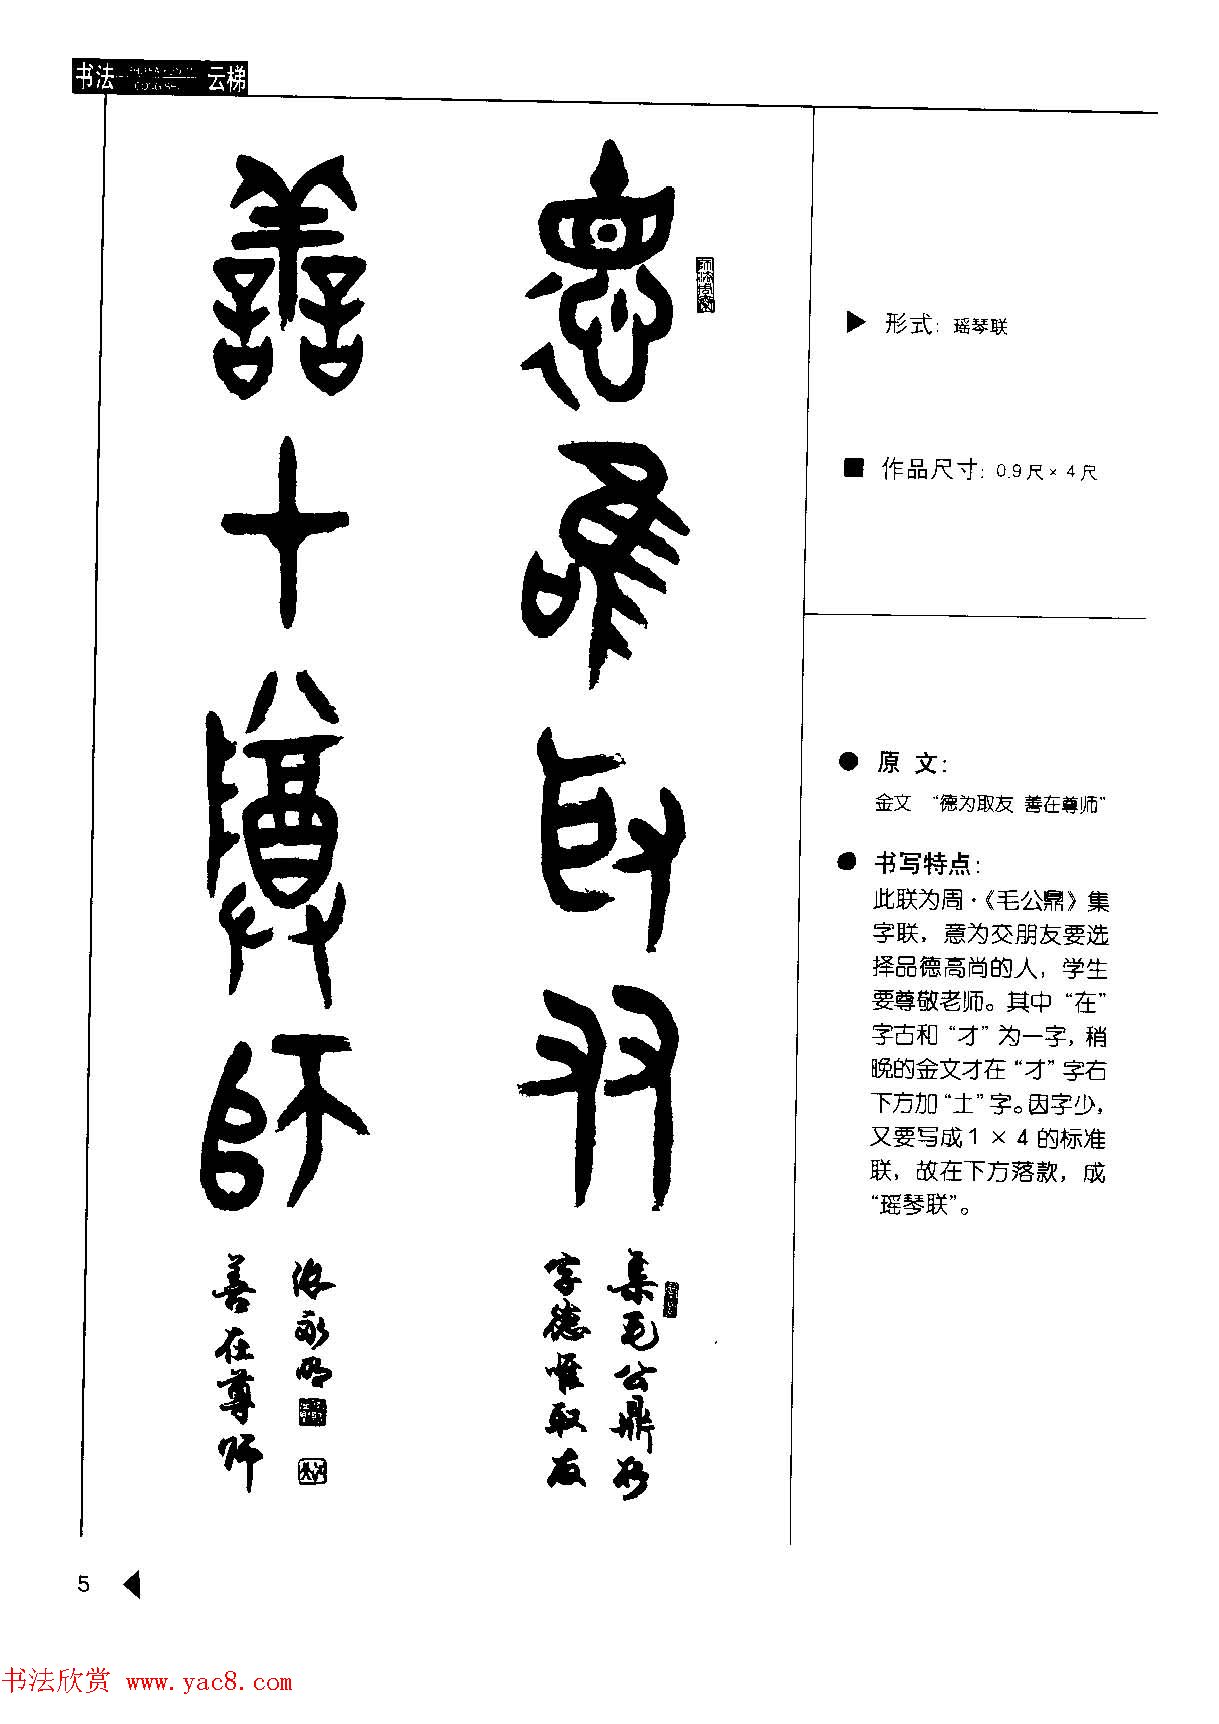 书法 云梯
德唯取友
善在尊师
集毛公鼎
字德惟取友
永明
善在尊师
▶ 形式：瑶琴联
■ 作品尺寸：0.9尺×4尺
● 原 文：
金文 “德为取友 善在尊师”
● 书写特点：
此联为周·《毛公鼎》集
字联，意为交朋友要选
择品德高尚的人，学生
要尊敬老师。其中“在”
字古和“才”为一字，稍
晚的金文才在“才”字右
下方加“土”字。因字少，
又要写成1×4的标准
联，故在下方落款，成
“瑶琴联”。
5
书法欣赏 www.yac8.com